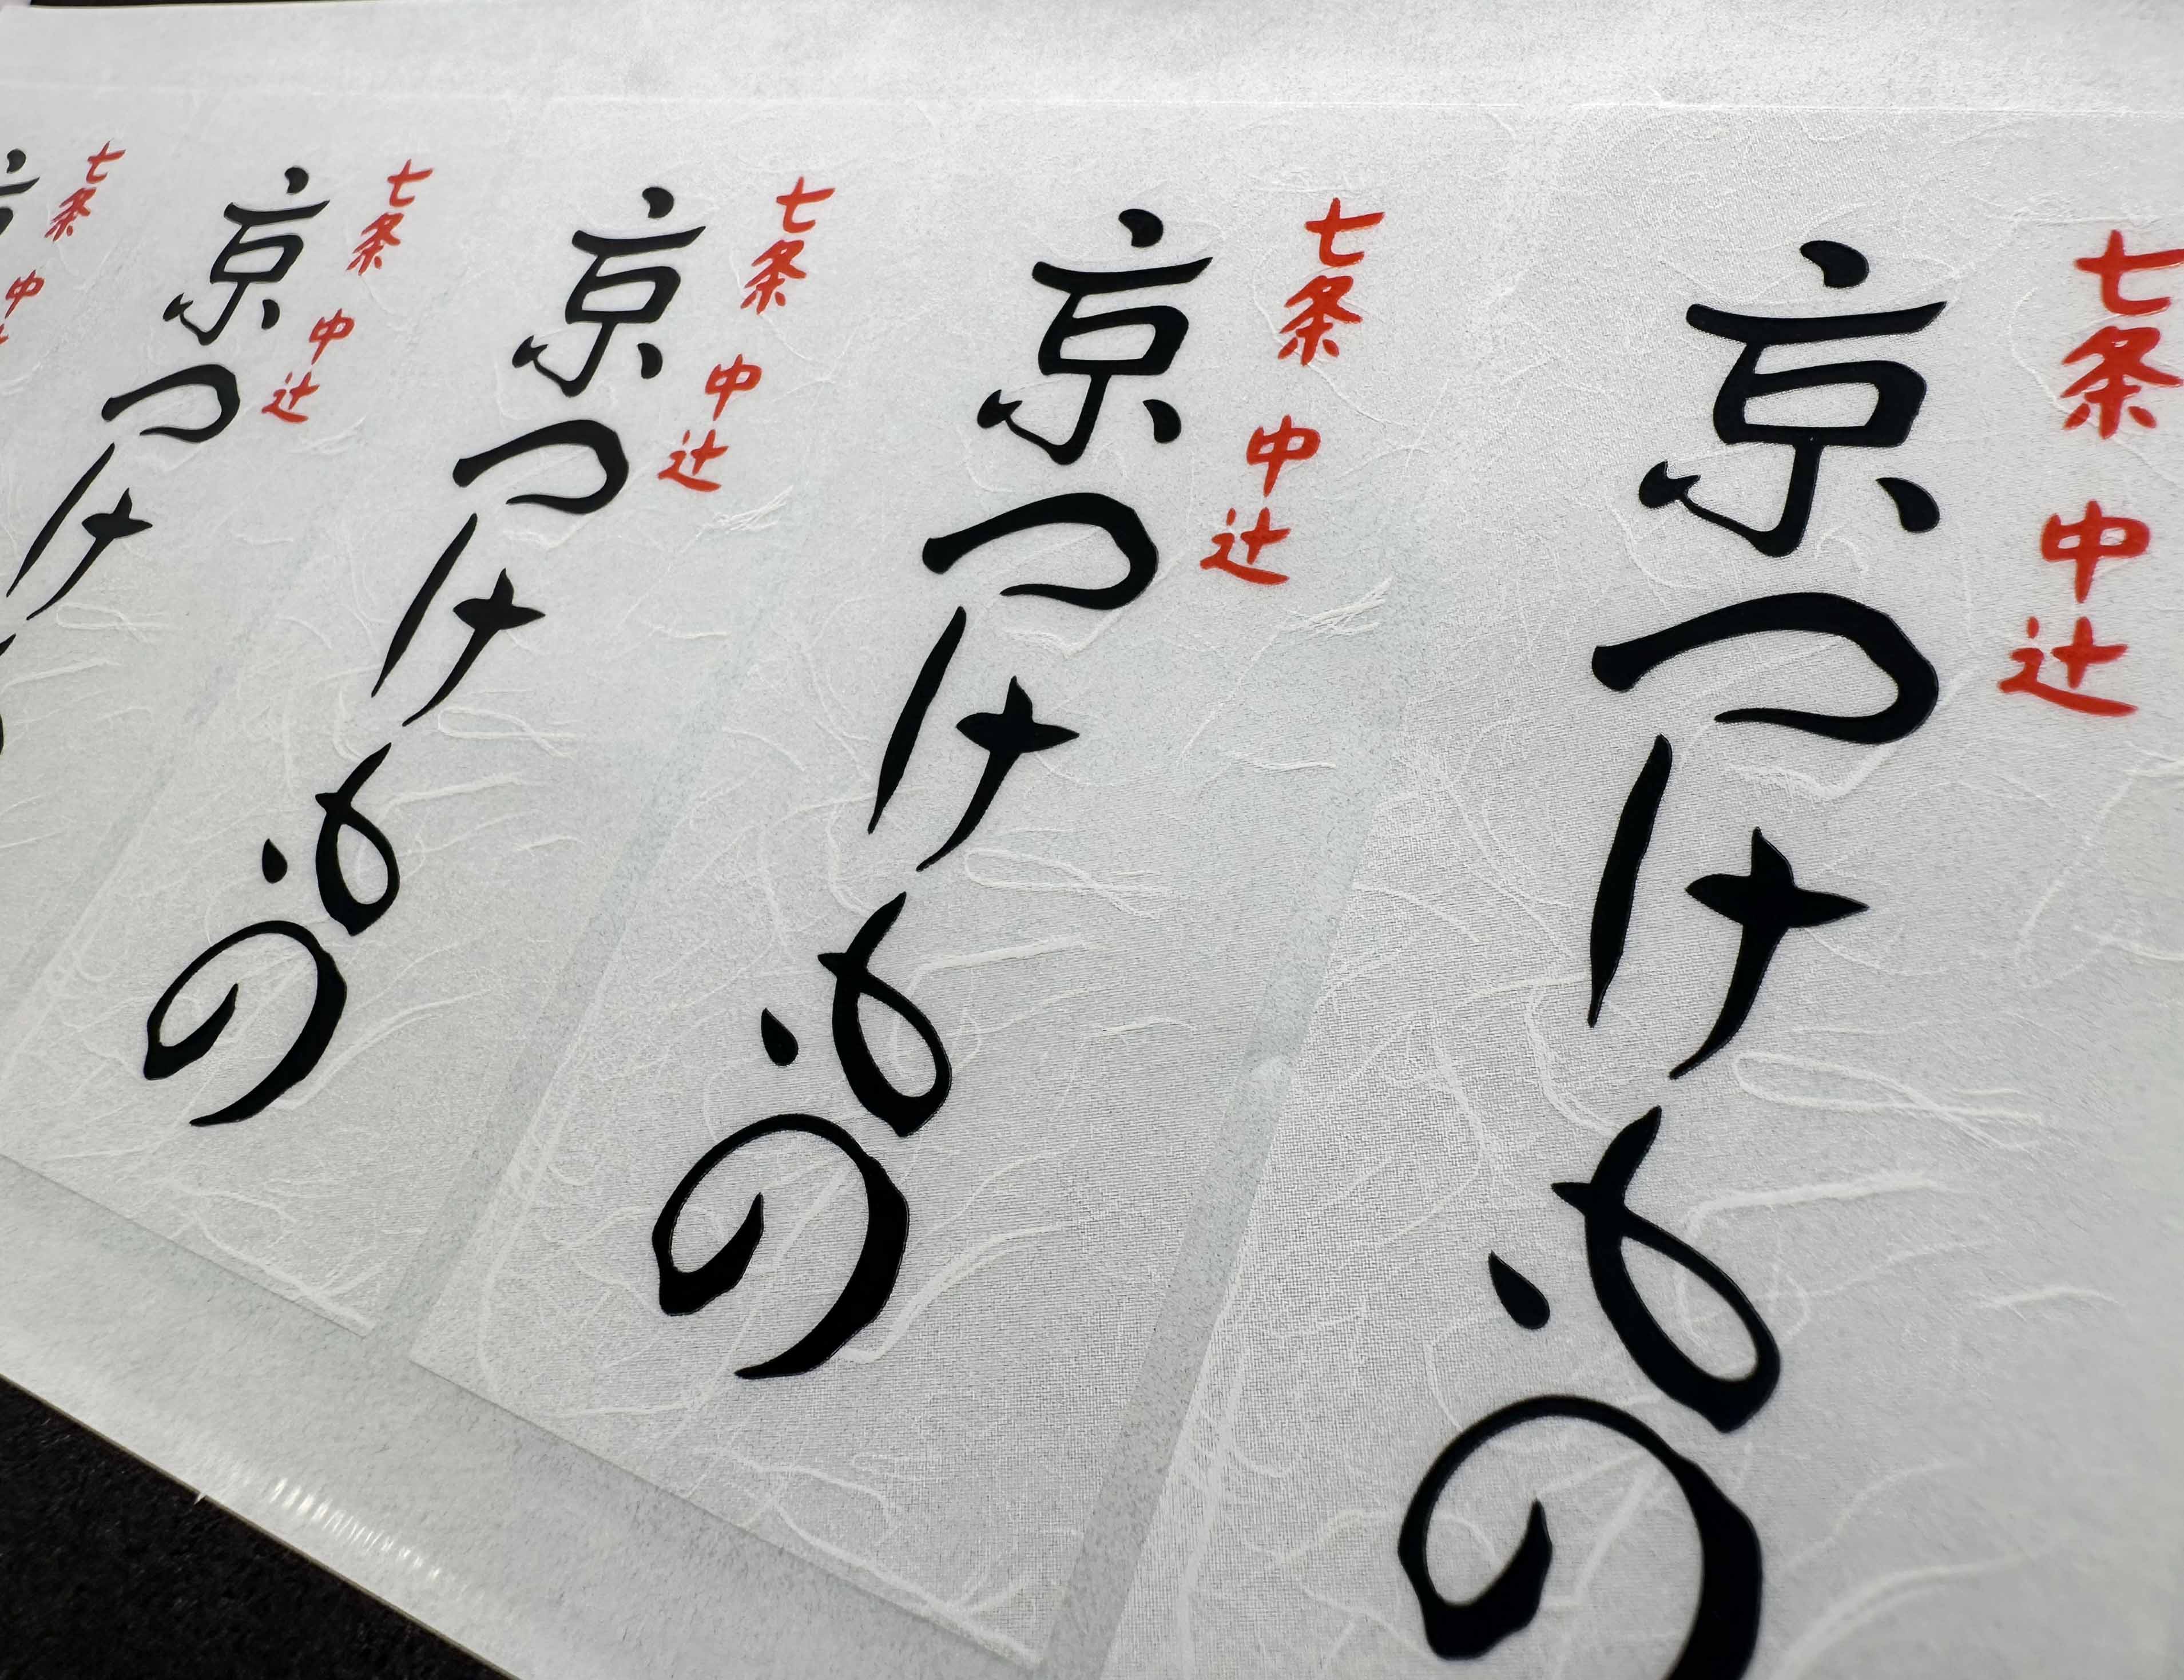 七条 中辻
京つけもの
七条 中辻
京つけもの
七条 中辻
京つけもの
七条 中辻
京つけもの
七条 中
京